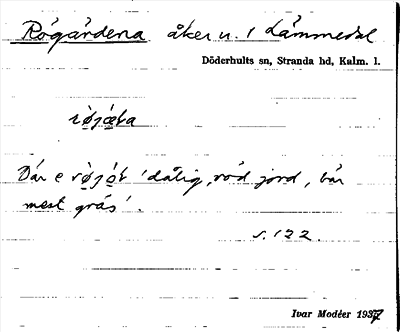 Rögärdena åker u. 1 Lämmedal
Döderhults sn, Stranda hd, Kalm. l.
röjæta
Där e röjöt 'dålig, röd jord, bär
mest gräs'.
s. 122.
Ivar Modéer 1937